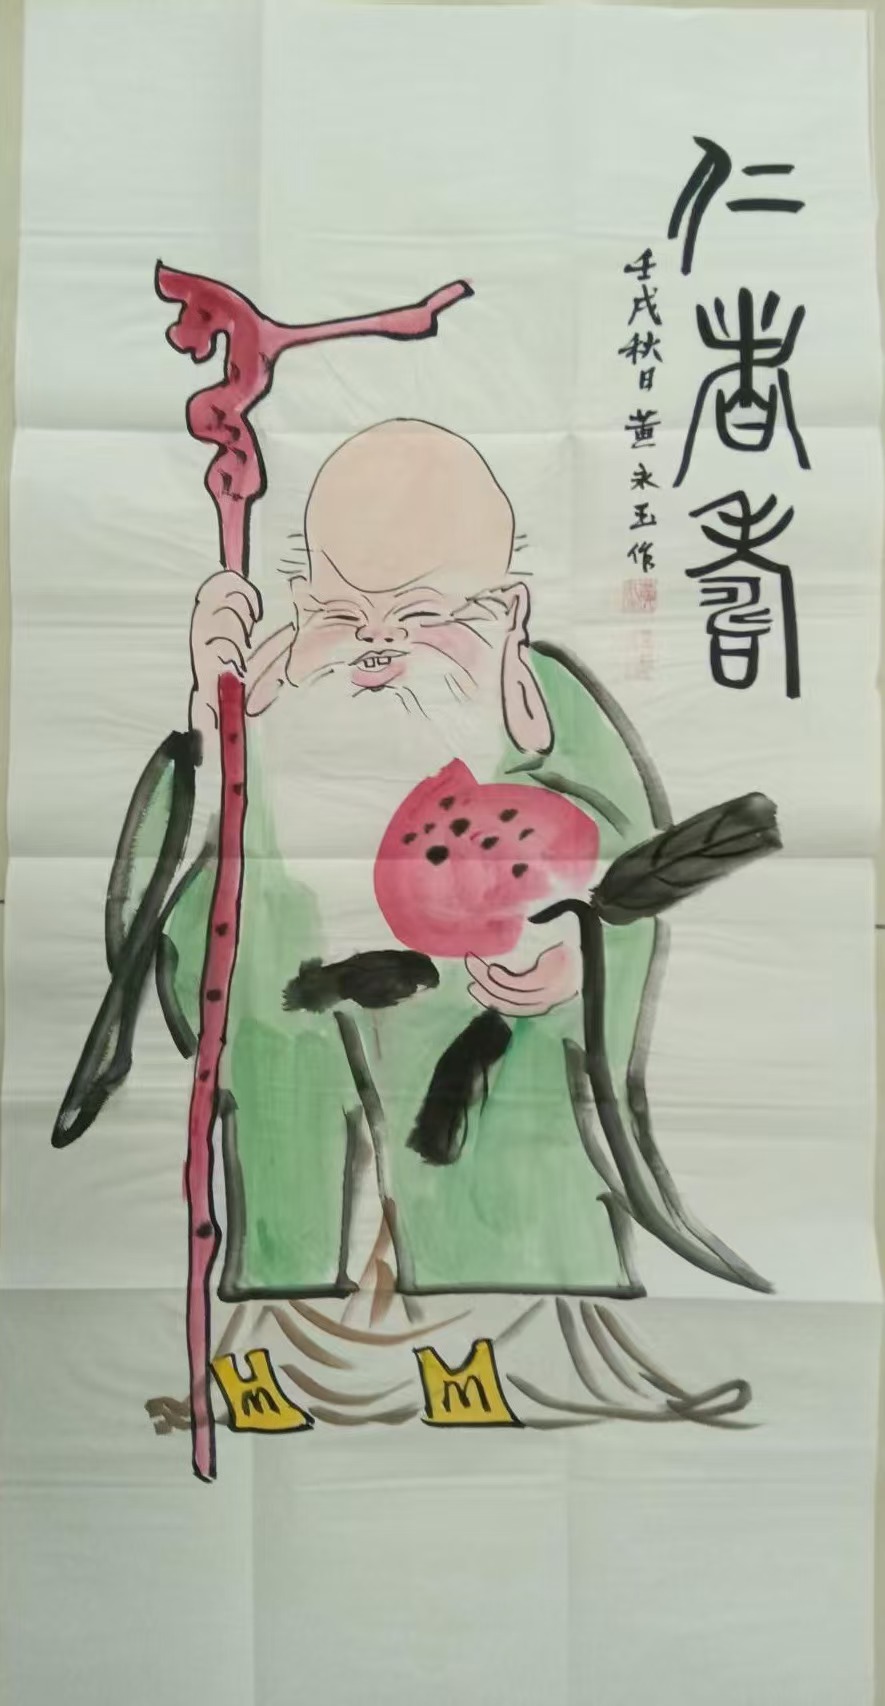 仁者寿
壬戌秋日 黄永玉作